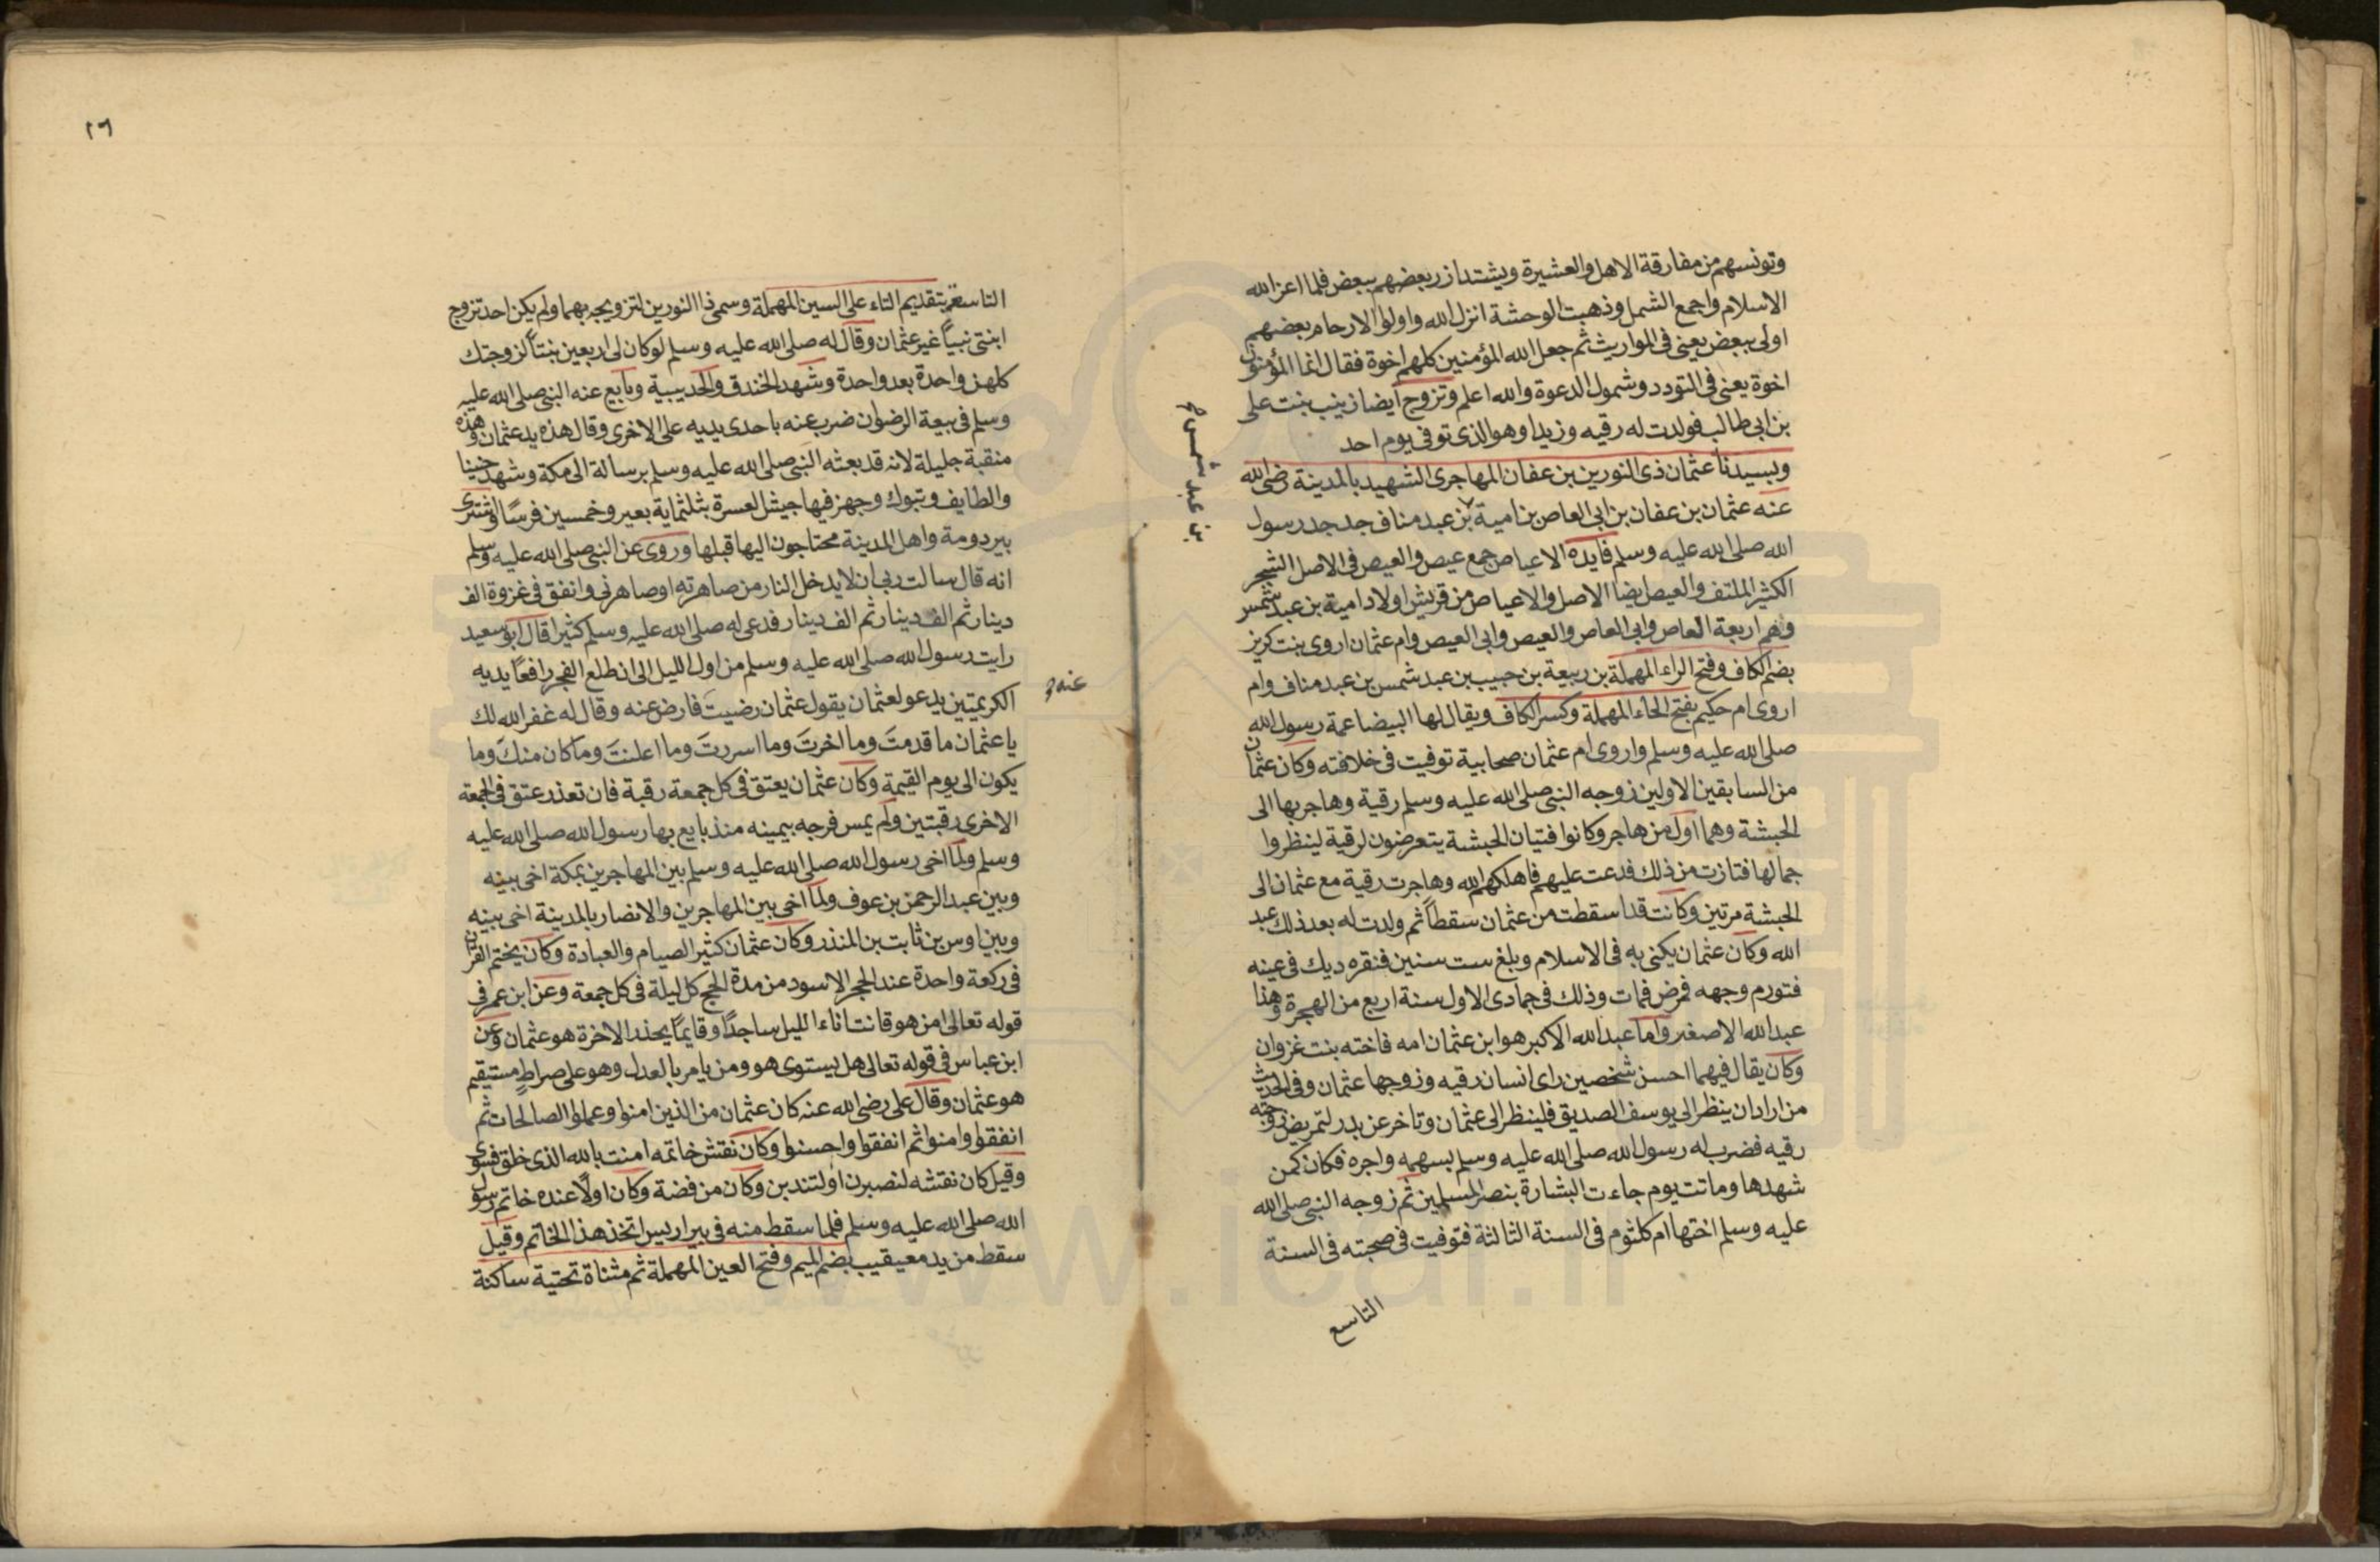 وتونسهم من مفارقة الاهل والعشيرة ويشتد ازر بعضهم ببعض فلما اعز الله
الاسلام واجمع الشمل وذهبت الوحشة انزل الله واولوا الارحام بعضهم
اولى ببعض يعني في المواريث ثم جعل الله المؤمنين كلهم اخوة فقال انما المؤمنون
اخوة يعني في التودد وشمول الدعوة والله اعلم وتزوج ايضا زينب بنت على
بن ابي طالب فولدت له رقيه وزيدا وهو الذى توفى يوم احد
وبسيدنا عثمان ذى النورين بن عفان المهاجرى الشهيد بالمدينة رضى الله
عنه عثمان بن عفان بن ابى العاص بن امية بن عبد مناف جد جد رسول
بن عبد شمس صح
الله صلى الله عليه وسلم فايده الاعياص جمع عيص والعيص فى الاصل الشجر
الكثير الملتف والعيص ايضا الاصل والاعياص من قريش اولاد امية بن عبد شمس
وهم اربعة العاص وابى العاص والعيص وابى العيص وام عثمان اروى بنت كريز
بضم الكاف وفتح الراء المهملة بن ربيعة بن حبيب بن عبد شمس بن عبد مناف وام
اروى ام حكيم بفتح الحاء المهملة وكسر الكاف ويقال لها البيضا عمة رسول الله
صلى الله عليه وسلم واروى ام عثمان صحابية توفيت فى خلافته وكان عثمان
من السابقين الاولين زوجه النبى صلى الله عليه وسلم رقية وهاجر بها الى
الحبشة وهما اول من هاجر وكانوا فتيان الحبشة يتعرضون لرقية لينظروا
جمالها فتازت من ذلك فدعت عليهم فاهلكهم الله وهاجرت رقية مع عثمان الى
الحبشة مرتين وكانت قد اسقطت من عثمان سقطاً ثم ولدت له بعد ذلك عبد
الله وكان عثمان يكنى به فى الاسلام وبلغ ست سنين فنقره ديك فى عينه
فتورم وجهه فمرض فمات وذلك فى جمادى الاول سنة اربع من الهجرة وهذا
عبد الله الاصغر واما عبد الله الاكبر هو ابن عثمان امه فاخته بنت غزوان
وكان يقال فيهما احسن شخصين راى انسان رقيه وزوجها عثمان وفى الحديث
من اراد ان ينظر الى يوسف الصديق فلينظر الى عثمان وتاخر عن بدر لتمريض زوجته
رقيه فضرب له رسول الله صلى الله عليه وسلم بسهمه واجره فكان كمن
شهدها وماتت يوم جاءت البشارة بنصر المسلمين ثم زوجه النبى صلى الله
عليه وسلم اختها ام كلثوم فى السنة الثالثة فتوفيت فى صحبته فى السنة
التاسع
٢٦
التاسعة بتقديم التاء على السين المهملة وسمى ذا النورين لتزويجه بهما ولم يكن احد تزوج
ابنتى نبياً غير عثمان وقال له صلى الله عليه وسلم لو كان لى اربعين بنتاً لزوجتك
كلهن واحدة بعد واحدة وشهد الخندق والحديبية وبايع عنه النبى صلى الله عليه
وسلم فى بيعة الرضوان ضرب عنه باحدى يديه على الاخرى وقال هذه يد عثمان وهذه
منقبة جليلة لانه قد بعثه النبى صلى الله عليه وسلم برسالة الى مكة وشهد حنينا
والطايف وتبوك وجهز فيها جيش العسرة بثلثماية بعير وخمسين فرساً واشترى
بير دومة واهل المدينة محتاجون اليها قبلها وروى عن النبى صلى الله عليه وسلم
انه قال سالت ربى ان لا يدخل النار من صاهرته او صاهرنى وانفق فى غزوة الف
دينار ثم الف دينار ثم الف دينار فدعى له صلى الله عليه وسلم كثيرا قال ابو سعيد
رايت رسول الله صلى الله عليه وسلم من اول الليل الى ان طلع الفجر رافعاً يديه
الكريمتين يدعو لعثمان يقول عثمان رضيت فارض عنه وقال له غفر الله لك
عنه صح
يا عثمان ما قدمتَ وما اخرتَ وما اسررتَ وما اعلنتَ وما كان منكَ وما
يكون الى يوم القيمة وكان عثمان يعتق فى كل جمعة رقبة فان تعذر عتق فى الجمعة
الاخرى رقبتين ولم يمس فرجه بيمينه منذ بايع بها رسول الله صلى الله عليه
وسلم ولما اخى رسول الله صلى الله عليه وسلم بين المهاجرين بمكة اخى بينه
وبين عبد الرحمن بن عوف ولما اخى بين المهاجرين والانصار بالمدينة اخى بينه
وبين اوس بن ثابت بن المنذر وكان عثمان كثير الصيام والعبادة وكان يختم القران
فى ركعة واحدة عند الحجر الاسود من مدة الحج كل ليلة فى كل جمعة وعن ابن عمر فى
قوله تعالى امن هو قانت اناء الليل ساجداً وقايماً يحذر الاخرة هو عثمان وعن
ابن عباس فى قوله تعالى هل يستوى هو ومن يامر بالعدل وهو على صراط مستقيم
هو عثمان وقال على رضى الله عنه كان عثمان من الذين امنوا وعملوا الصالحات ثم
انفقوا وامنوا ثم انفقوا واحسنوا وكان نقش خاتمه امنت بالله الذى خلق فسوى
وقيل كان نقشه لنصبرن او لتندبن وكان من فضة وكان اولاً عنده خاتم رسول
الله صلى الله عليه وسلم فلما سقط منه فى بير اريس اتخذ هذا الخاتم وقيل
سقط من يد معيقيب بضم الميم وفتح العين المهملة ثم مثناة تحتية ساكنة